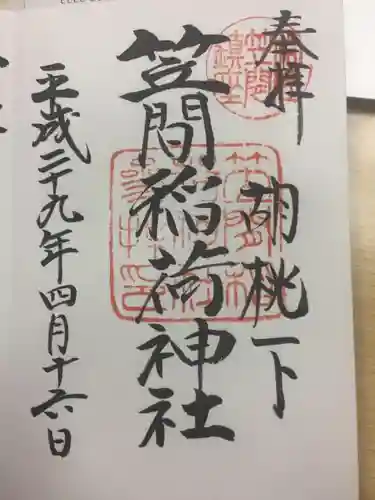 奉拝
胡桃下
笠間稲荷神社
平成二十九年四月十六日